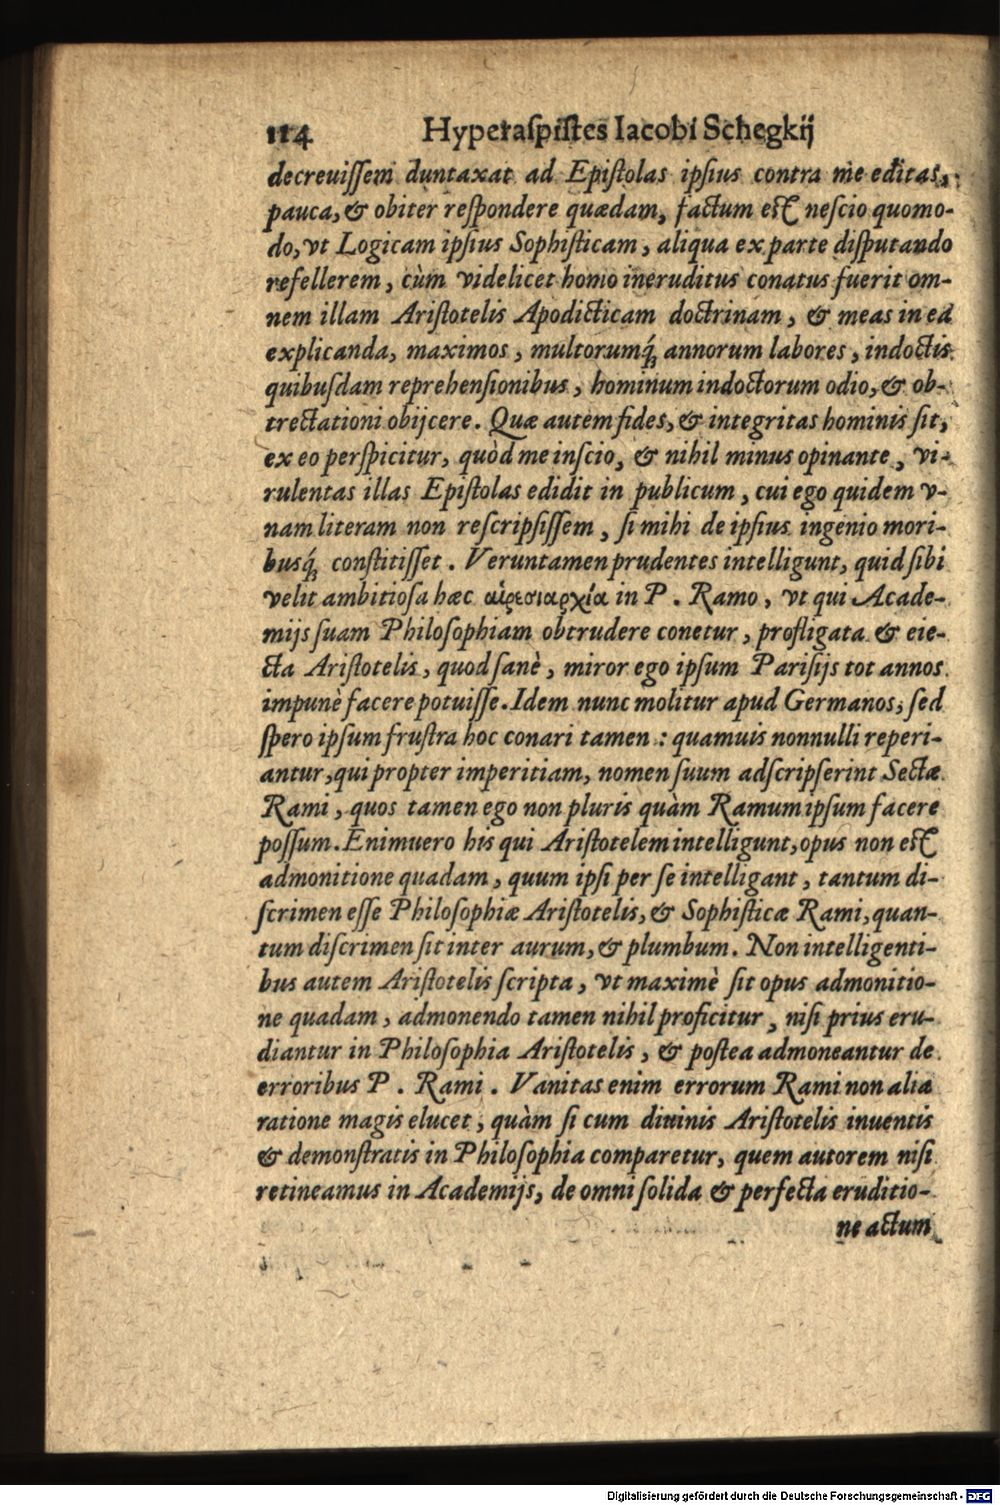 114 Hyperaſpiſtes Iacobi Schegkij
decreuiſſem duntaxat ad Epiſtolas ipſius contra me editas,
pauca, & obiter reſpondere quædam, factum eſt neſcio quomo-
do, vt Logicam ipſius Sophiſticam, aliqua ex parte diſputando
refellerem, cùm videlicet homo ineruditus conatus fuerit om-
nem illam Ariſtotelis Apodicticam doctrinam, & meas in ea
explicanda, maximos, multorumq́; annorum labores, indoctis
quibuſdam reprehenſionibus, hominum indoctorum odio, & ob-
trectationi obijcere. Quæ autem fides, & integritas hominis ſit,
ex eo perſpicitur, quòd me inſcio, & nihil minus opinante, vi-
rulentas illas Epiſtolas edidit in publicum, cui ego quidem v-
nam literam non reſcripſiſſem, ſi mihi de ipſius ingenio mori-
busq́; conſtitiſſet. Veruntamen prudentes intelligunt, quid ſibi
velit ambitioſa hæc αἱρεσιαρχία in P. Ramo, vt qui Acade-
mijs ſuam Philoſophiam obtrudere conetur, profligata & eie-
cta Ariſtotelis, quod ſanè, miror ego ipſum Pariſijs tot annos
impunè facere potuiſſe. Idem nunc molitur apud Germanos, ſed
ſpero ipſum fruſtra hoc conari tamen: quamuis nonnulli reperi-
antur, qui propter imperitiam, nomen ſuum adſcripſerint Sectæ
Rami, quos tamen ego non pluris quàm Ramum ipſum facere
poſſum. Enimuero his qui Ariſtotelem intelligunt, opus non eſt
admonitione quadam, quum ipſi per ſe intelligant, tantum di-
ſcrimen eſſe Philoſophiæ Ariſtotelis, & Sophiſticæ Rami, quan-
tum diſcrimen ſit inter aurum, & plumbum. Non intelligenti-
bus autem Ariſtotelis ſcripta, vt maximè ſit opus admonitio-
ne quadam, admonendo tamen nihil proficitur, niſi prius eru-
diantur in Philoſophia Ariſtotelis, & poſtea admoneantur de
erroribus P. Rami. Vanitas enim errorum Rami non alia
ratione magis elucet, quàm ſi cum diuinis Ariſtotelis inuentis
& demonſtratis in Philoſophia comparetur, quem autorem niſi
retineamus in Academijs, de omni ſolida & perfecta eruditio-
ne actum
Digitalisierung gefördert durch die Deutsche Forschungsgemeinschaft - DFG